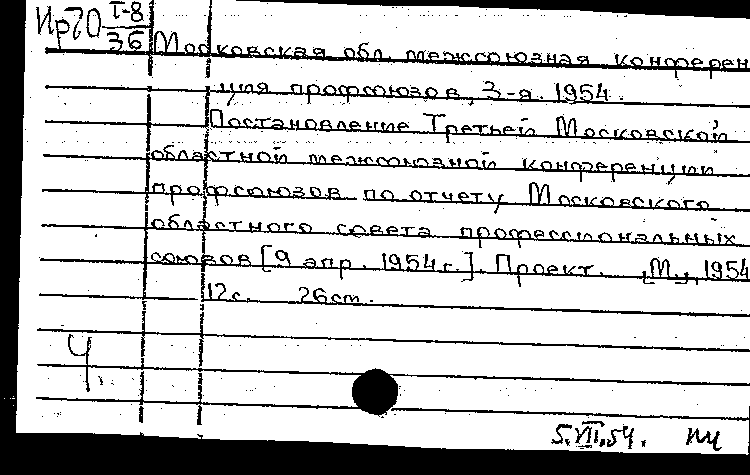 Ир70 I-8/36
Московская обл. межсоюзная конферен
ция профсоюзов, 3-я. 1954.
Постановление Третьей Московской
областной межсоюзной конференции
профсоюзов по отчету Московского
областного совета профессиональных
союзов [9 апр. 1954 г.]. Проект. [М.], 1954
12 с. 26 см.
Ч.
5.VII.54.